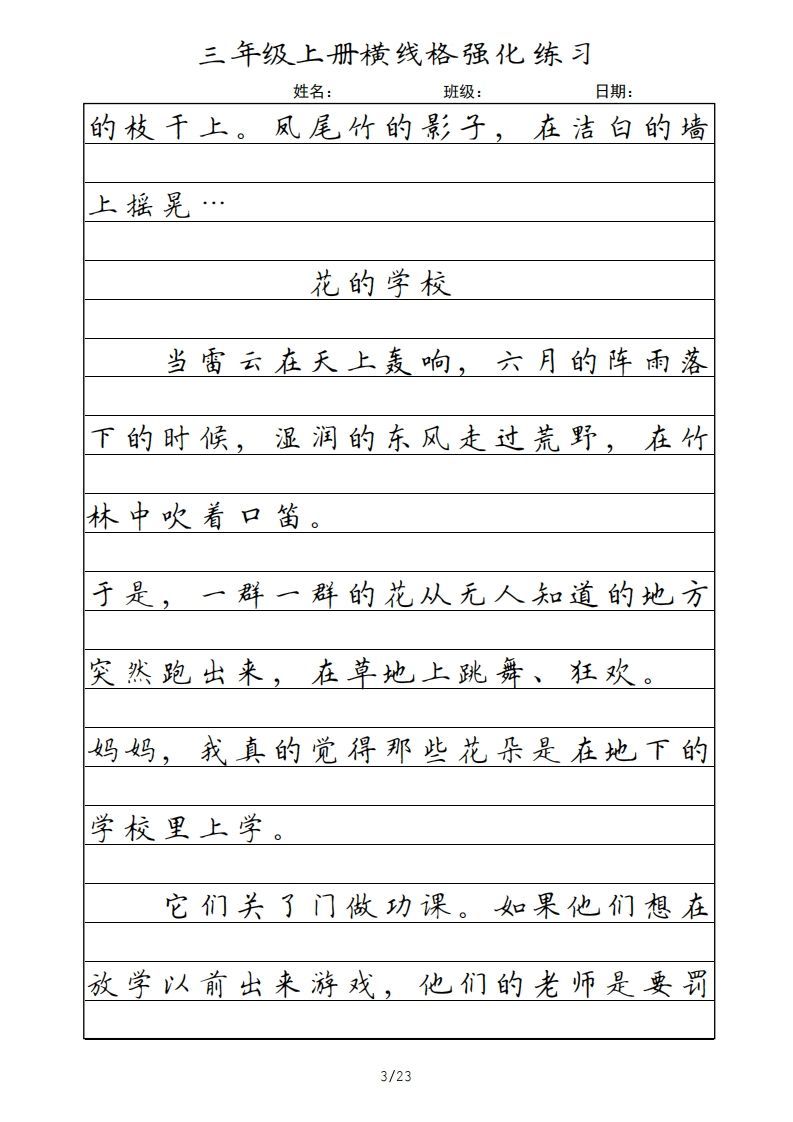 三年级上册横线格强化练习
姓名: 班级: 日期:
的枝干上。凤尾竹的影子，在洁白的墙
上摇晃…
花的学校
当雷云在天上轰响，六月的阵雨落
下的时候，湿润的东风走过荒野，在竹
林中吹着口笛。
于是，一群一群的花从无人知道的地方
突然跑出来，在草地上跳舞、狂欢。
妈妈，我真的觉得那些花朵是在地下的
学校里上学。
它们关了门做功课。如果他们想在
放学以前出来游戏，他们的老师是要罚
3/23